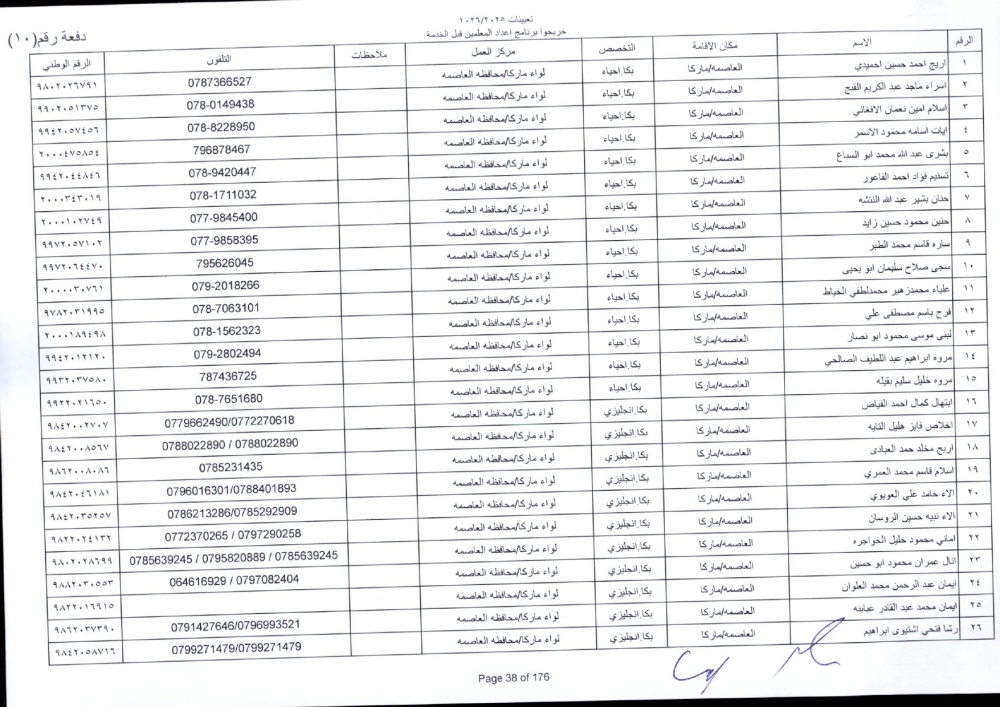 تعيينات ٢٠٢٦/٢٠٢٥
خريجوا برنامج اعداد المعلمين قبل الخدمة
دفعة رقم(١٠)
الرقم الاسم مكان الاقامة التخصص مركز العمل ملاحظات التلفون الرقم الوطني
١ اريج احمد حسين احميدي العاصمه/ماركا بكا.احياء لواء ماركا/محافظه العاصمه 0787366527 ٩٨٠٢٠٢٦٧٩١
٢ اسراء ماجد عبد الكريم الفيج العاصمه/ماركا بكا.احياء لواء ماركا/محافظه العاصمه 078-0149438 ٩٩٠٢٠٥١٣٧٥
٣ اسلام امين نعمان الافغاني العاصمه/ماركا بكا.احياء لواء ماركا/محافظه العاصمه 078-8228950 ٩٩٤٢٠٥٧٤٥٦
٤ ايات اسامه محمود الاسمر العاصمه/ماركا بكا.احياء لواء ماركا/محافظه العاصمه 796878467 ٢٠٠٠٤٧٥٨٥٤
٥ بشرى عبد الله محمد ابو السباع العاصمه/ماركا بكا.احياء لواء ماركا/محافظه العاصمه 078-9420447 ٩٩٤٢٠٤٤٨٤٦
٦ تسنيم فؤاد احمد الفاعور العاصمه/ماركا بكا.احياء لواء ماركا/محافظه العاصمه 078-1711032 ٢٠٠٠٣٤٣٠١٩
٧ حنان بشير عبد الله النتشه العاصمه/ماركا بكا.احياء لواء ماركا/محافظه العاصمه 077-9845400 ٢٠٠٠١٠٢٧٤٩
٨ حنين محمود حسين زايد العاصمه/ماركا بكا.احياء لواء ماركا/محافظه العاصمه 077-9858395 ٩٩٧٢٠٥٧١٠٢
٩ ساره قاسم محمد الطبر العاصمه/ماركا بكا.احياء لواء ماركا/محافظه العاصمه 795626045 ٩٩٧٢٠٦٤٤٧٠
١٠ سجى صلاح سليمان ابو يحيى العاصمه/ماركا بكا.احياء لواء ماركا/محافظه العاصمه 079-2018266 ٢٠٠٠٠٣٠٧٦١
١١ علياء محمدزهير محمدلطفي الخياط العاصمه/ماركا بكا.احياء لواء ماركا/محافظه العاصمه 078-7063101 ٩٧٨٢٠٣١٩٩٥
١٢ فرح باسم مصطفى علي العاصمه/ماركا بكا.احياء لواء ماركا/محافظه العاصمه 078-1562323 ٢٠٠٠١٨٩٤٩٨
١٣ لبنى موسى محمود ابو نصار العاصمه/ماركا بكا.احياء لواء ماركا/محافظه العاصمه 079-2802494 ٩٩٤٢٠١٢١٢٠
١٤ مروه ابراهيم عبد اللطيف الصالحي العاصمه/ماركا بكا.احياء لواء ماركا/محافظه العاصمه 787436725 ٩٩٣٢٠٣٧٥٨٠
١٥ مروه خليل سليم بقيله العاصمه/ماركا بكا.احياء لواء ماركا/محافظه العاصمه 078-7651680 ٩٩٢٢٠٢١٦٥٠
١٦ ابتهال كمال احمد الفياض العاصمه/ماركا بكا.انجليزي لواء ماركا/محافظه العاصمه 0779662490/0772270618 ٩٨٤٢٠٠٢٧٠٧
١٧ اخلاص فايز هليل التايه العاصمه/ماركا بكا.انجليزي لواء ماركا/محافظه العاصمه 0788022890 / 0788022890 ٩٨٤٢٠٠٨٥٦٧
١٨ اريج مخلد حمد العبادى العاصمه/ماركا بكا.انجليزي لواء ماركا/محافظه العاصمه 0785231435 ٩٨٦٢٠٠٨٠٨٦
١٩ اسلام قاسم محمد العمري العاصمه/ماركا بكا.انجليزي لواء ماركا/محافظه العاصمه 0796016301/0788401893 ٩٨٤٢٠٤٦١٨١
٢٠ الاء حامد علي العويوي العاصمه/ماركا بكا.انجليزي لواء ماركا/محافظه العاصمه 0786213286/0785292909 ٩٨٤٢٠٣٥٢٥٧
٢١ الاء نبيه حسين الروسان العاصمه/ماركا بكا.انجليزي لواء ماركا/محافظه العاصمه 0772370265 / 0797290258 ٩٨٢٢٠٢٤١٣٢
٢٢ اماني محمود خليل الحواجره العاصمه/ماركا بكا.انجليزي لواء ماركا/محافظه العاصمه 0785639245 / 0795820889 / 0785639245 ٩٨٠٢٠٢٨٦٩٩
٢٣ انال عمران محمود ابو حسين العاصمه/ماركا بكا.انجليزي لواء ماركا/محافظه العاصمه 064616929 / 0797082404 ٩٨٨٢٠٣٠٥٥٣
٢٤ ايمان عبد الرحمن محمد العلوان العاصمه/ماركا بكا.انجليزي لواء ماركا/محافظه العاصمه ٩٨٢٢٠١٦٩١٥
٢٥ ايمان محمد عبد القادر عبابنه العاصمه/ماركا بكا.انجليزي لواء ماركا/محافظه العاصمه 0791427646/0796993521 ٩٨٦٢٠٣٧٣٩٠
٢٦ رشا فتحي اشتيوى ابراهيم العاصمه/ماركا بكا.انجليزي لواء ماركا/محافظه العاصمه 0799271479/0799271479 ٩٨٤٢٠٥٨٧١٦
Page 38 of 176